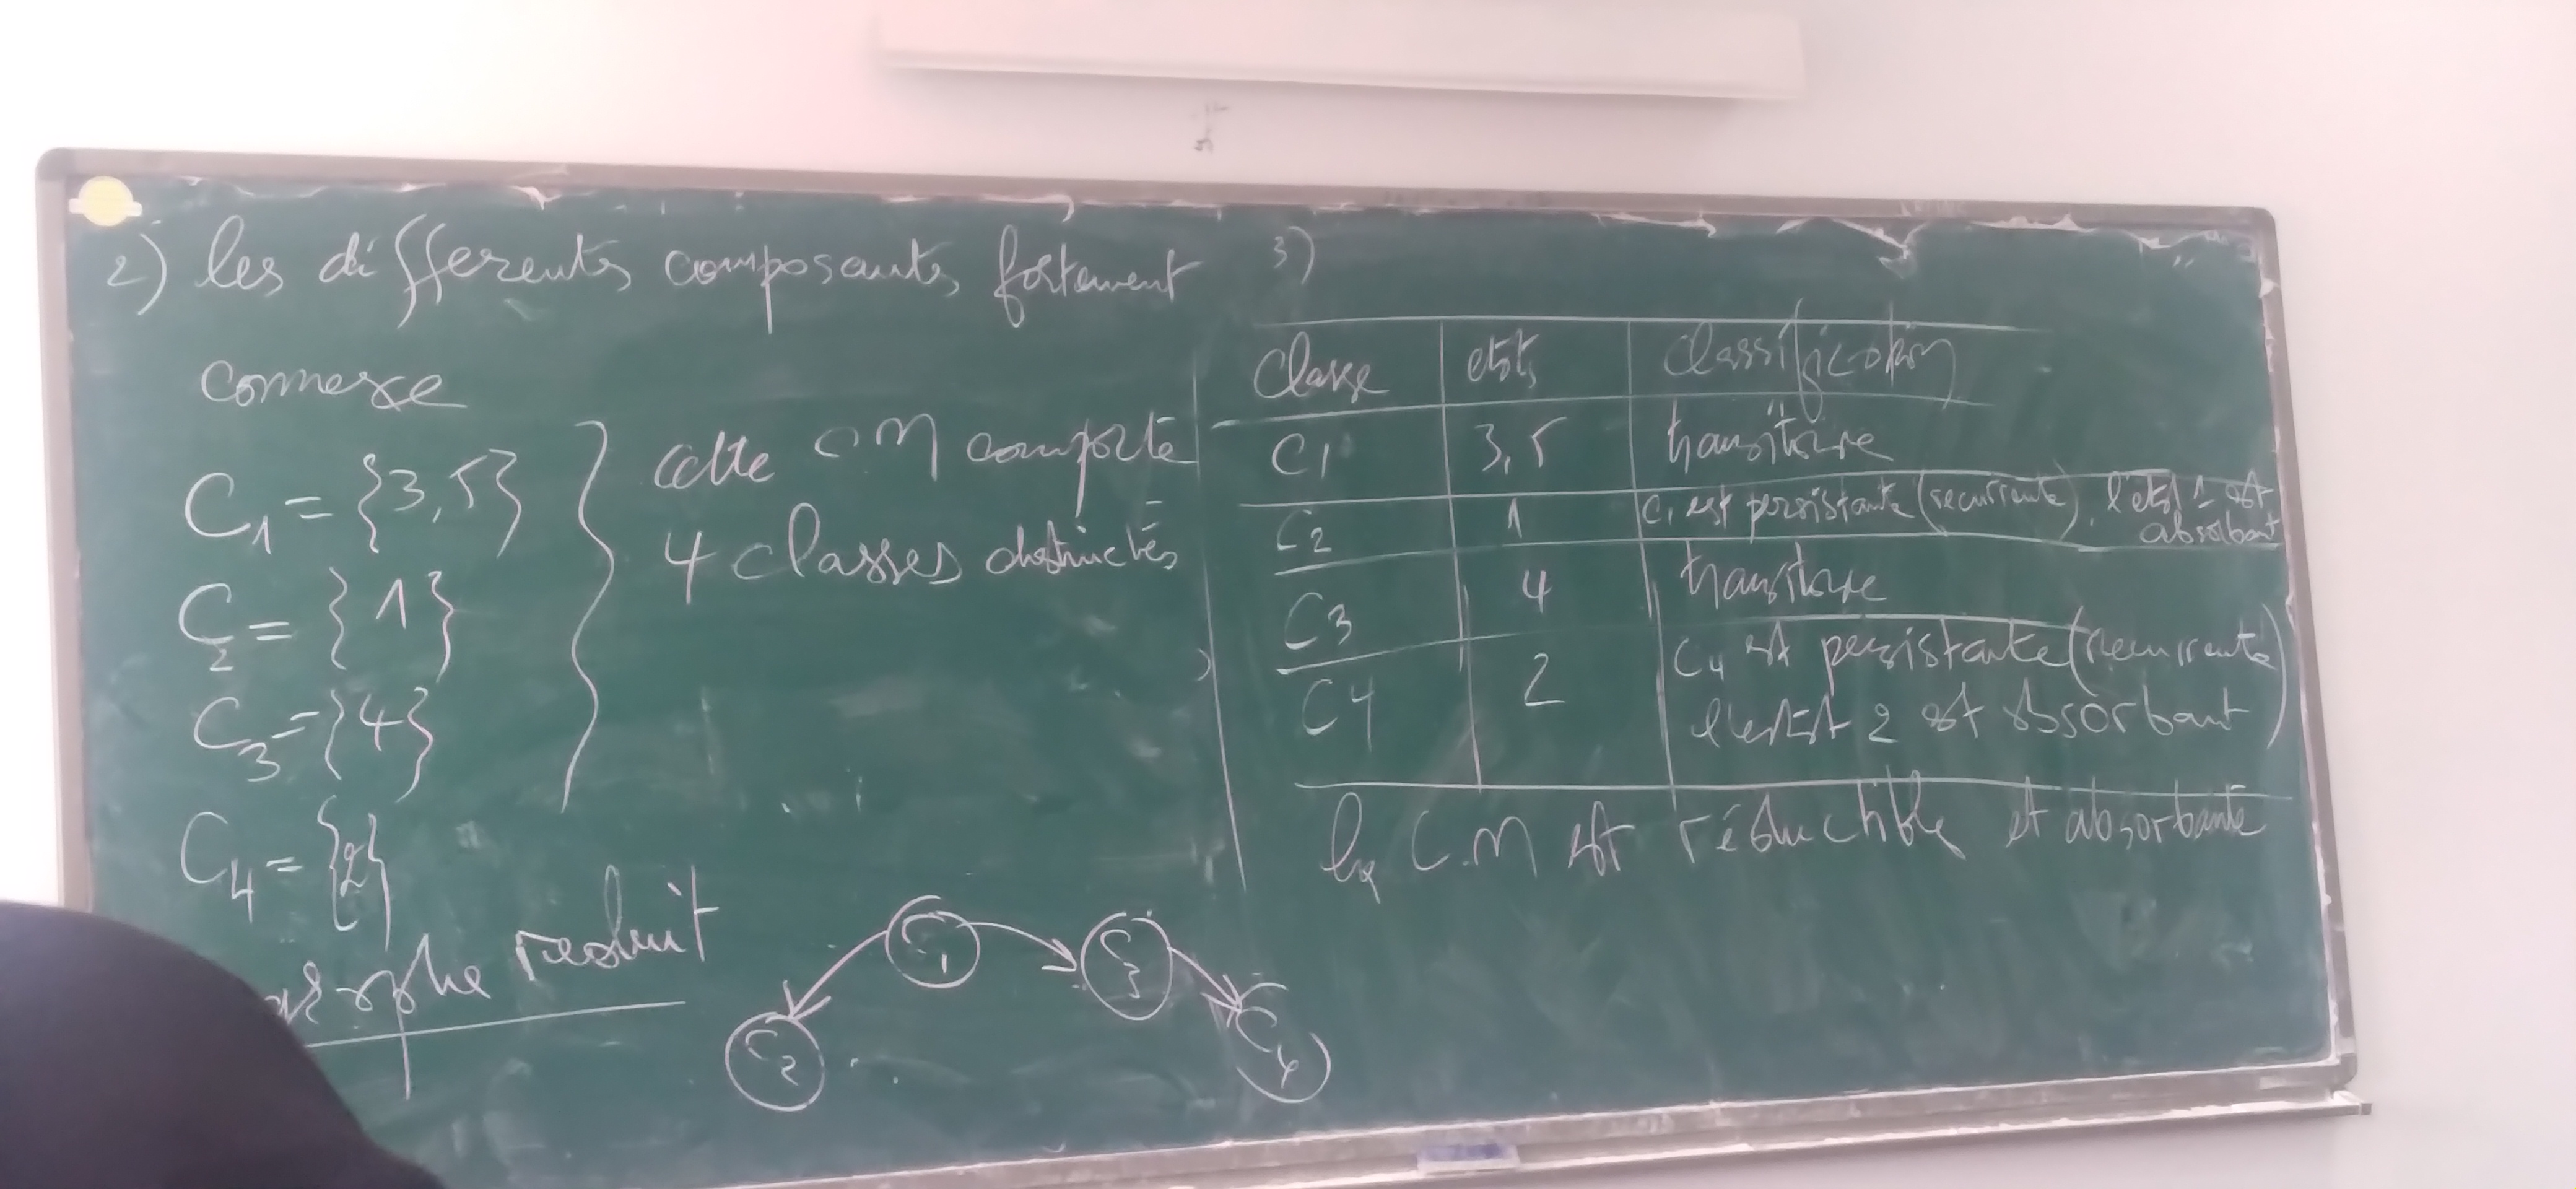 2) les differents composants fortement
connexe
C1 = {3,5}
C2 = {1}
C3 = {4}
C4 = {2}
cette CM comporte
4 classes distinctes
graphe reduit
C1
C3
C2
C4
3)
Classe etats classification
C1 3,5 transitoire
C2 1 C1 est persistante (recurrente), l'etat 1 est
absorbant
C3 4 transitoire
C4 2 C4 est persistante (recurrente)
l'etat 2 est absorbant
la C.M est réductible et absorbante